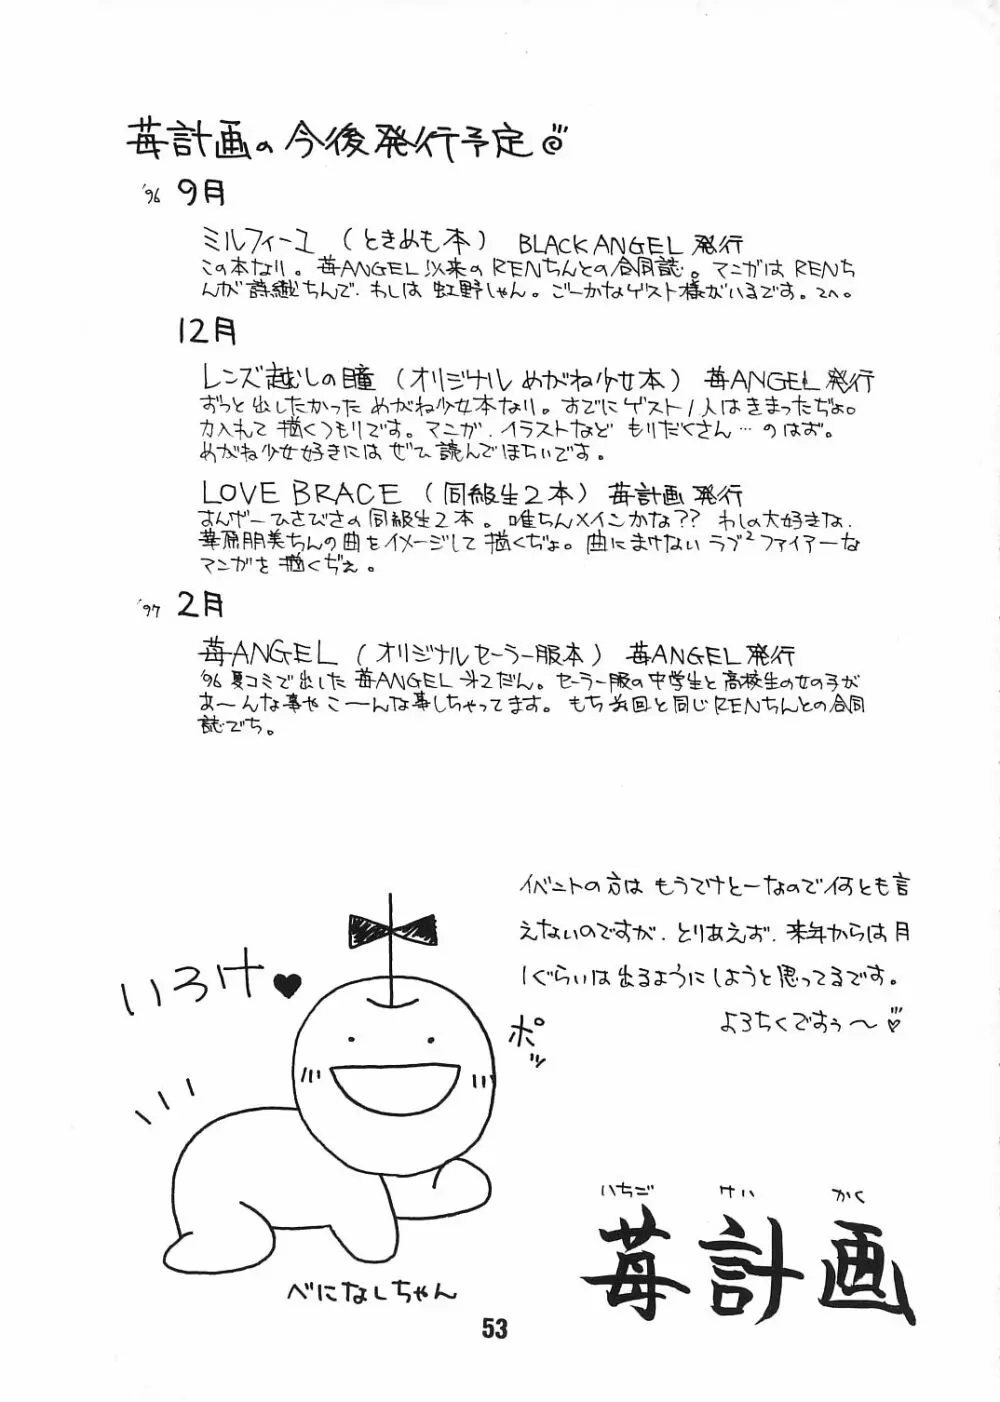 苺計画の今後発行予定
'96 9月
ミルフィーユ (ときめも本) BLACK ANGEL 発行
この本なり。苺ANGEL以来のRENちんとの合同誌。マンガはRENち
んが詩織ちんで、わしは虹野しゃん。ごーかなゲスト様がいるです。
12月
レンズ越しの瞳 (オリジナルめがね少女本) 苺ANGEL発行
ずっと出したかっためがね少女本なり。すでにゲスト1人はきまったぢょ。
力入れて描くつもりです。マンガ、イラストなどもりだくさん…のはず。
めがね少女好きにはぜひ読んでほちいです。
LOVE BRACE (同級生2本) 苺計画発行
すんげーひさびさの同級生2本。唯ちんメインかな?? わしの大好きな、
華原朋美ちんの曲をイメージして描くぢょ。曲にまけないラブ²ファイアーな
マンガを描くぢぇ。
'97 2月
苺ANGEL (オリジナルセーラー服本) 苺ANGEL発行
'96夏コミで出した苺ANGEL 第2だん。セーラー服の中学生と高校生の女の子が
あ〜んな事やこ〜んな事しちゃってます。もち前回と同じRENちんとの合同
誌でち。
イベントの方はもうてけとーなので何とも言
えないのですが、とりあえず、来年からは月
1ぐらいは出るようにしようと思ってるです。
よろちくですぅ〜♥
いろけ♥
ポッ
べになしちゃん
いちご けい かく
苺計画
53